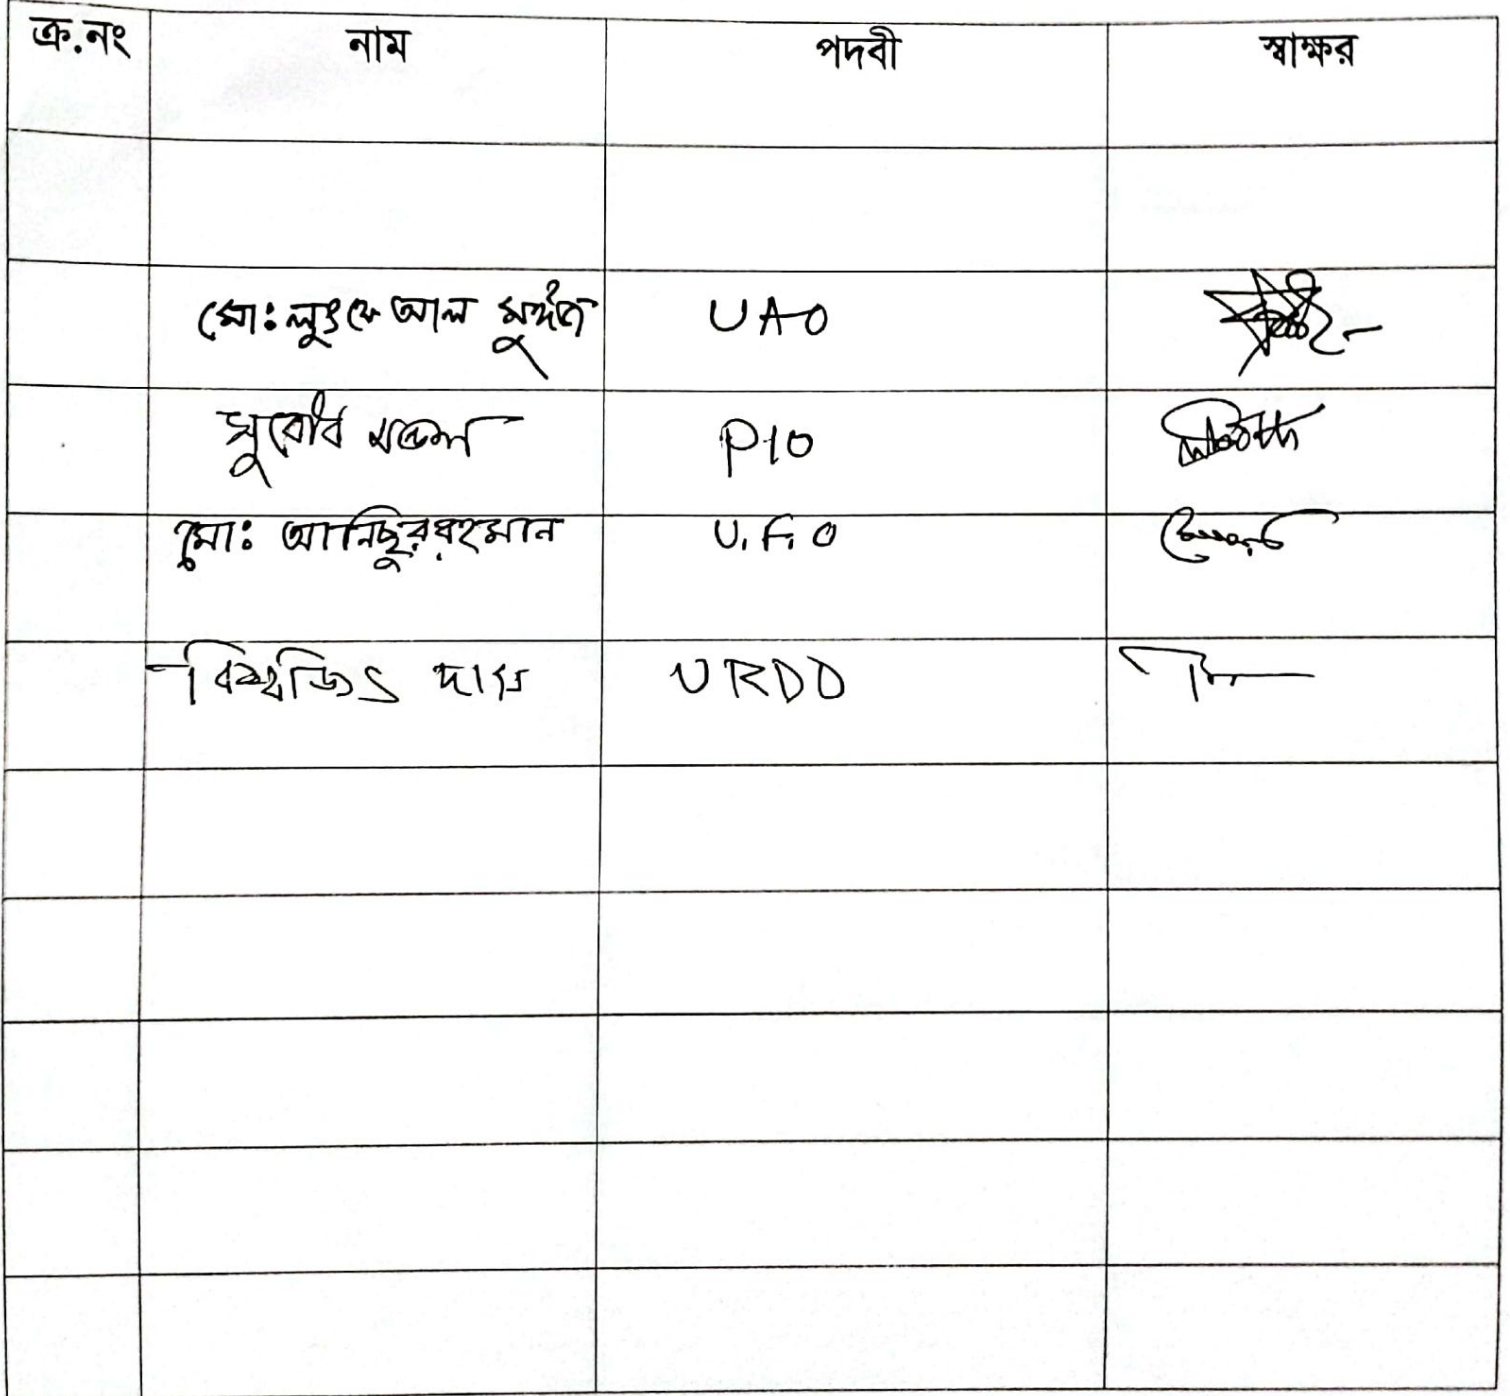 ক্র.নং নাম পদবী স্বাক্ষর
মোঃ আল UAO
সুবোধ মন্ডল PIO
মোঃ আনিছুর রহমান U.F.O
বিশ্বজিৎ দাস URDO